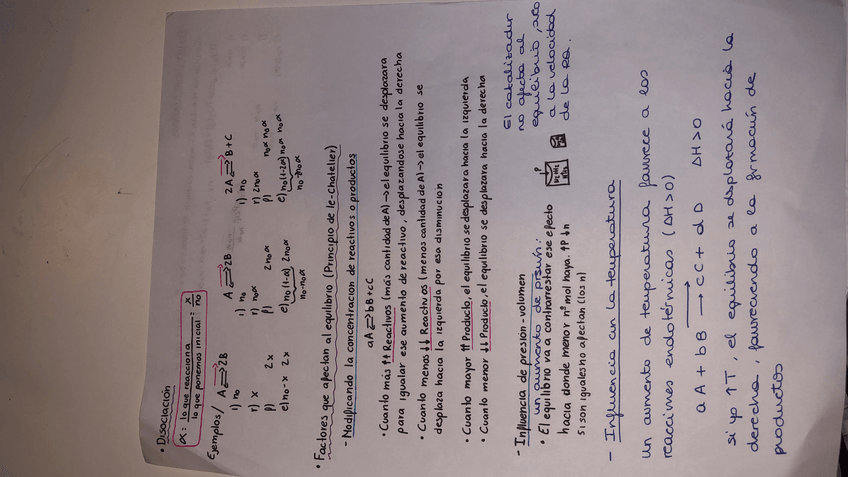 • Disociación
α = lo que reacciona / lo que ponemos inicial = x / n₀
Ejemplos/ A ⇄ 2B A ⇄ 2B 2A ⇄ B + C
i) n₀ i) n₀ i) n₀
r) x r) n₀α r) 2n₀α
f) 2x f) 2n₀α f) n₀α n₀α
e) n₀-x 2x e) n₀(1-α) 2n₀α e) n₀(1-2α) n₀α n₀α
n₀-n₀α
• Factores que afectan al equilibrio (Principio de le-Chatelier)
- Modificando la concentracion de reactivos o productos
aA ⇄ bB + cC
• Cuanto más ↑↑ Reactivos (más cantidad de A) → el equilibrio se desplazara
para igualar ese aumento de reactivo, desplazandose hacia la derecha
• Cuanto menos ↓↓ Reactivos (menos cantidad de A) → el equilibrio se
desplaza hacia la izquierda por esa disminucion
• Cuanto mayor ↑↑ Producto, el equilibrio se desplazara hacia la izquierda
• Cuanto menor ↓↓ Producto, el equilibrio se desplazara hacia la derecha
- Influencia de presion-volumen
un aumento de presión:
• El equilibrio va a contrarrestar ese efecto
hacia donde menor nº mol haya. ↑P ↓n
Si son iguales no afectan (los n)
El catalizador
no afecta al
equilibrio, sino
a la velocidad
de la
- Influencia en la temperatura
un aumento de temperatura favorece a los
reacciones endotérmicas (ΔH>0)
aA + bB → cC + dD ΔH>0
si yo ↑T, el equilibrio se desplazará hacia la
derecha, favoreciendo a la formación de
productos